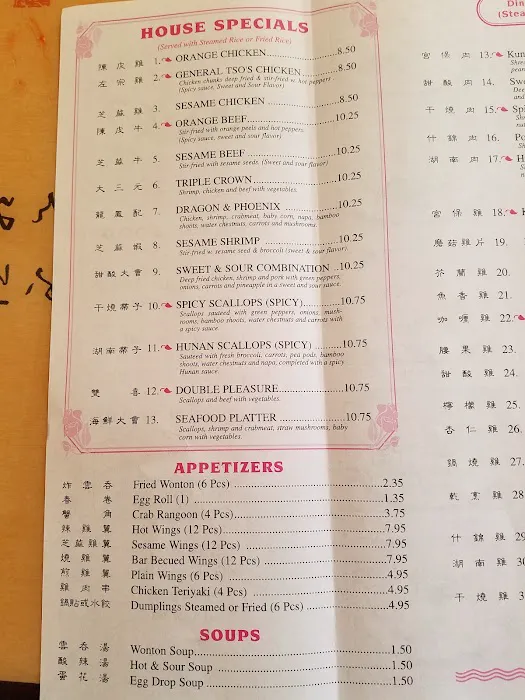 HOUSE SPECIALS
(Served with Steamed Rice or Fried Rice)
陳皮雞 1. ORANGE CHICKEN 8.50
左宗雞 2. GENERAL TSO'S CHICKEN 8.50
Chicken chunks deep fried & stir-fried w. hot peppers
(Spicy sauce, Sweet and Sour Flavor)
芝蔴雞 3. SESAME CHICKEN 8.50
陳皮牛 4. ORANGE BEEF 10.25
Stir-fried with orange peels and hot peppers.
(Spicy sauce, sweet and sour flavor)
芝蔴牛 5. SESAME BEEF 10.25
Stir-fried with sesame seeds. (Sweet and sour flavor)
大三元 6. TRIPLE CROWN 10.25
Shrimp, chicken and beef with vegetables.
龍鳳配 7. DRAGON & PHOENIX 10.25
Chicken, shrimp, crabmeat, baby corn, napa, bamboo
shoots, water chestnuts, carrots and mushrooms.
芝蔴蝦 8. SESAME SHRIMP 10.25
Stir fried w. sesame seed & broccoli (sweet & sour flavor).
甜酸大會 9. SWEET & SOUR COMBINATION 10.25
Deep fried chicken, shrimp and pork with green peppers,
onions, carrots and pineapple in a sweet and sour sauce.
干燒帶子 10. SPICY SCALLOPS (SPICY) 10.75
Scallops sauteed with green peppers, onions, mush-
rooms, bamboo shoots, water chestnuts and carrots with
a spicy sauce
湖南帶子 11. HUNAN SCALLOPS (SPICY) 10.75
Sauteed with fresh broccoli, carrots, pea pods, bamboo
shoots, water chestnuts and napa, completed with a spicy
Hunan sauce.
雙喜 12. DOUBLE PLEASURE 10.75
Scallops and beef with vegetables.
海鮮大會 13. SEAFOOD PLATTER 10.75
Scallops, shrimp and crabmeat, straw mushrooms, baby
corn with vegetables.
APPETIZERS
炸雲吞 Fried Wonton (6 Pcs) 2.35
春卷 Egg Roll (1) 1.35
蟹角 Crab Rangoon (4 Pcs) 3.75
辣雞翼 Hot Wings (12 Pcs) 7.95
芝蔴雞翼 Sesame Wings (12 Pcs) 7.95
燒雞翼 Bar Becued Wings (12 Pcs) 7.95
煎雞翼 Plain Wings (6 Pcs) 4.95
雞肉串 Chicken Teriyaki (4 Pcs) 4.95
鍋貼或水餃 Dumplings Steamed or Fried (6 Pcs) 4.95
SOUPS
雲吞湯 Wonton Soup 1.50
酸辣湯 Hot & Sour Soup 1.50
蛋花湯 Egg Drop Soup 1.50
Din
(Stea
宮保肉 13.
甜酸肉 14.
干燒肉 15.
什錦肉 16.
湖南肉 17.
宮保雞 18.
蘑菇雞片 19.
芥蘭雞 20.
魚香雞 21.
咖喱雞 22.
腰果雞 23.
甜酸雞 24.
檸檬雞 25.
杏仁雞 26.
鍋燒雞 27.
乾烹雞 28.
什錦雞 29
湖南雞 30
干燒雞 3